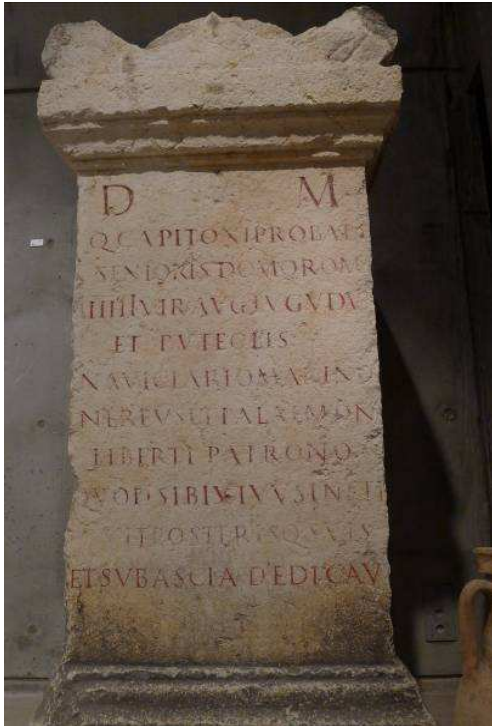 D M
Q CAPITONI PROBATI
SENIORIS DOMO ROM
IIIIIIVIR AVG LVGVDV
ET PVTEOLIS
NAVICLARIO MARINO
NEREVS ET PALAEMON
LIBERTI PATRONO
QVOD SIBI VIVVS INSTI
POSTERISQ SVIS
ET SVB ASCIA DEDICAV